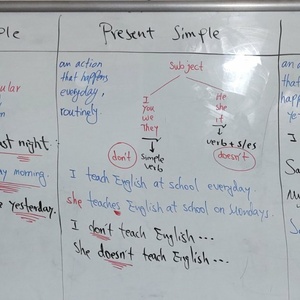 ple
Present Simple
ular
ast night.
ay morning.
e yesterday.
an action
that happens
everyday,
routinely.
Subject
I
you
we
They
He
she
it
don't
simple
verb
verb + s/es
doesn't
I teach English at school everyday.
she teaches English at school on Mondays.
I don't teach English ...
She doesn't teach English ...
an a
tha
happ
I
Sa